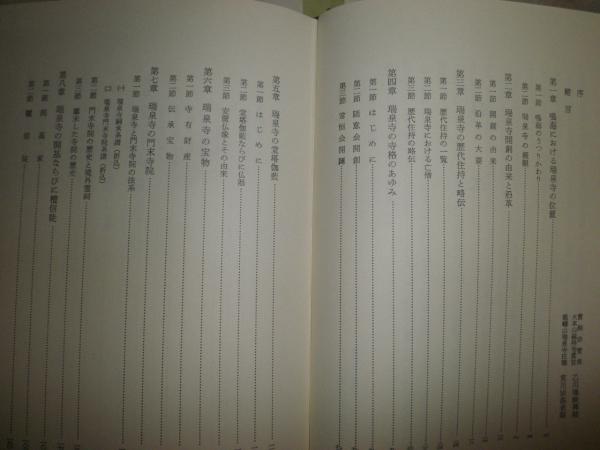 序
題言
第一章 鳴海における瑞泉寺の位置
第一節 鳴海のうつりかわり
第二節 瑞泉寺の
第二章 瑞泉寺開創の由来と沿革
第一節 開創の由来
第二節 沿革の大要
第三章 瑞泉寺の歴代住持と略伝
第一節 歴代住持の一覧
第二節 瑞泉寺における亡僧
第三節 歴代住持の略伝
第四章 瑞泉寺の寺格のあゆみ
第一節 はじめに
第二節 随意会開創
第三節 常恒会開闢
第五章 瑞泉寺の堂塔伽藍
第一節 はじめに
第二節 堂塔伽藍ならびに仏器
第三節 安置仏像とその由来
第六章 瑞泉寺の宝物
第一節 寺有財産
第二節 伝承宝物
第七章 瑞泉寺の門末寺院
第一節 瑞泉寺と門末寺院の法系
(一) 瑞泉寺嗣承系譜(折込)
(二) 瑞泉寺門末寺院系譜(折込)
第二節 門末寺院の歴史と境外霊祠
第三節 離末した寺院の歴史
第八章 瑞泉寺の開基ならびに檀信徒
第一節 開基家
第二節 檀信徒